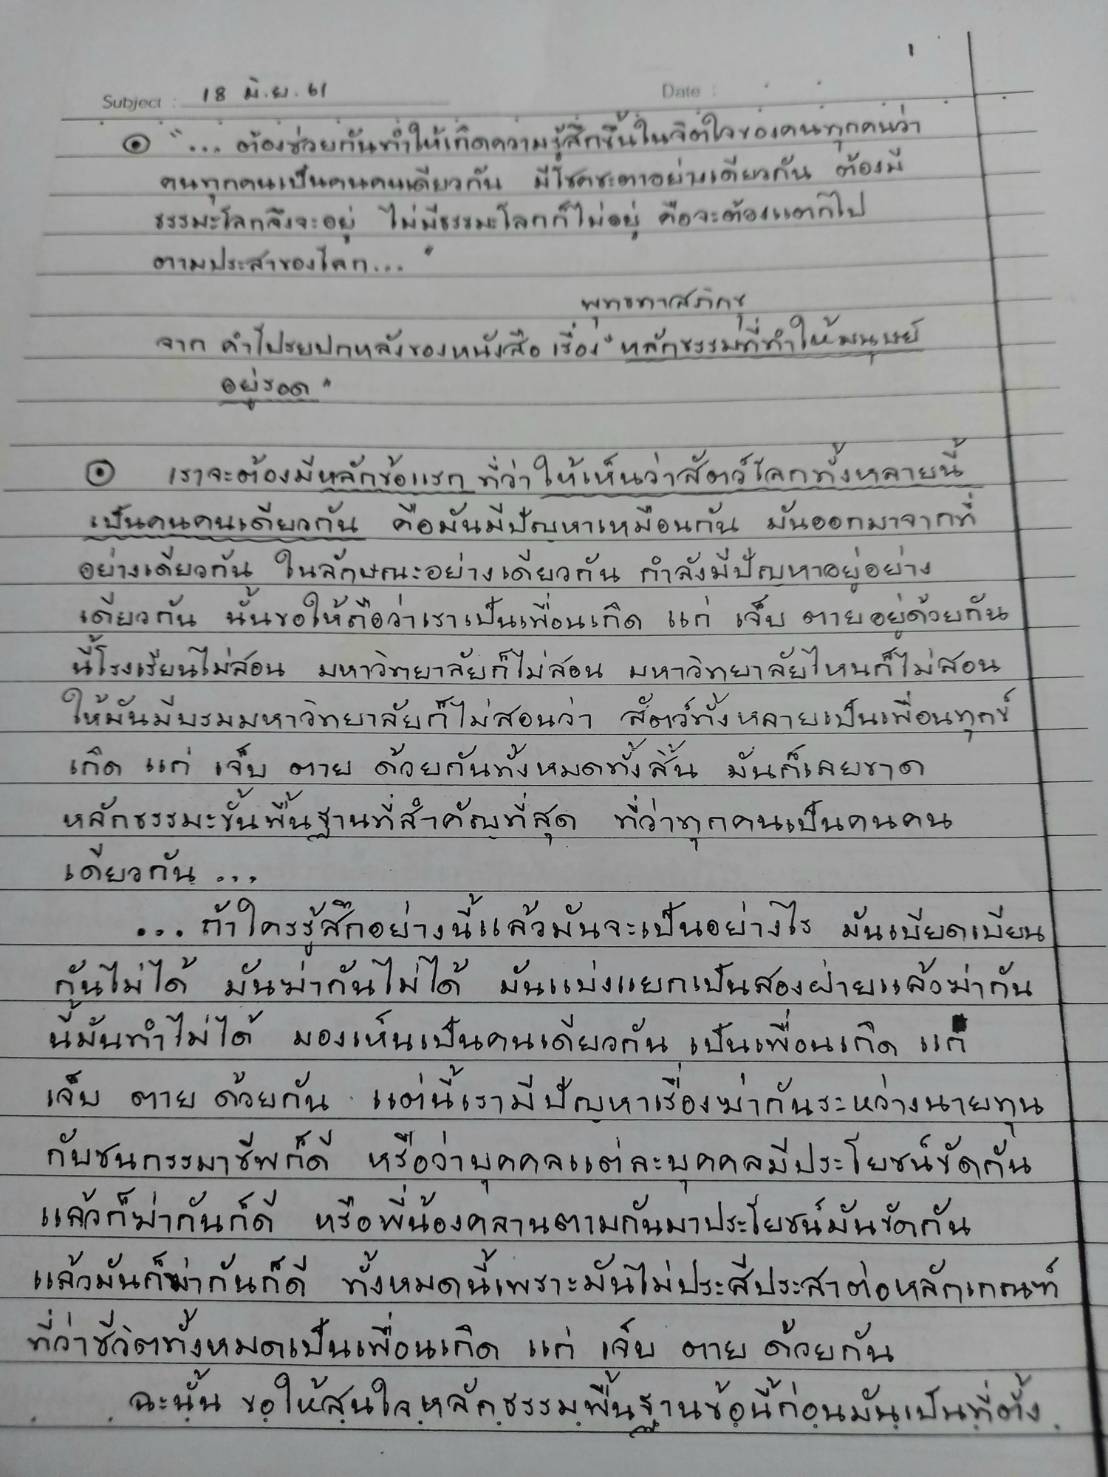 1
Subject : 18 มิ.ย. 61 Date :
⊙ "... ต้องช่วยกันทำให้เกิดความรู้สึกขึ้นในจิตใจของคนทุกคนว่า
คนทุกคนเป็นคนคนเดียวกัน มีโชคชะตาอย่างเดียวกัน ต้องมี
ธรรมะโลกจึงจะอยู่ ไม่มีธรรมะโลกก็ไม่อยู่ คือจะต้องแตกไป
ตามประสาของโลก..."
พุทธทาสภิกขุ
จาก คำโปรยปกหลังของหนังสือ เรื่อง "หลักธรรมที่ทำให้มนุษย์
อยู่รอด"
⊙ เราจะต้องมีหลักข้อแรก ที่ว่า ให้เห็นว่าสัตว์โลกทั้งหลายนี้
เป็นคนคนเดียวกัน คือมันมีปัญหาเหมือนกัน มันออกมาจากที่
อย่างเดียวกัน ในลักษณะอย่างเดียวกัน กำลังมีปัญหาอยู่อย่าง
เดียวกัน นั้นขอให้ถือว่าเราเป็นเพื่อนเกิด แก่ เจ็บ ตายอยู่ด้วยกัน
นี้โรงเรียนไม่สอน มหาวิทยาลัยก็ไม่สอน มหาวิทยาลัยไหนก็ไม่สอน
ให้มันมีบรมมหาวิทยาลัยก็ไม่สอนว่า สัตว์ทั้งหลายเป็นเพื่อนทุกข์
เกิด แก่ เจ็บ ตาย ด้วยกันทั้งหมดทั้งสิ้น มันก็เลยขาด
หลักธรรมะขั้นพื้นฐานที่สำคัญที่สุด ที่ว่าทุกคนเป็นคนคน
เดียวกัน ...
... ถ้าใครรู้สึกอย่างนี้แล้วมันจะเป็นอย่างไร มันเบียดเบียน
กันไม่ได้ มันฆ่ากันไม่ได้ มันแบ่งแยกเป็นสองฝ่ายแล้วฆ่ากัน
นี้มันทำไม่ได้ มองเห็นเป็นคนเดียวกัน เป็นเพื่อนเกิด แก่
เจ็บ ตาย ด้วยกัน แต่นี้เรามีปัญหาเรื่องฆ่ากันระหว่างนายทุน
กับชนกรรมาชีพก็ดี หรือว่าบุคคลแต่ละบุคคลมีประโยชน์ขัดกัน
แล้วก็ฆ่ากันก็ดี หรือพี่น้องคลานตามกันมาประโยชน์มันขัดกัน
แล้วมันก็ฆ่ากันก็ดี ทั้งหมดนี้เพราะมันไม่ประสีประสาต่อหลักเกณฑ์
ที่ว่าชีวิตทั้งหมดเป็นเพื่อนเกิด แก่ เจ็บ ตาย ด้วยกัน
ฉะนั้น ขอให้สนใจหลักธรรมพื้นฐานข้อนี้ก่อนมันเป็นที่ตั้ง